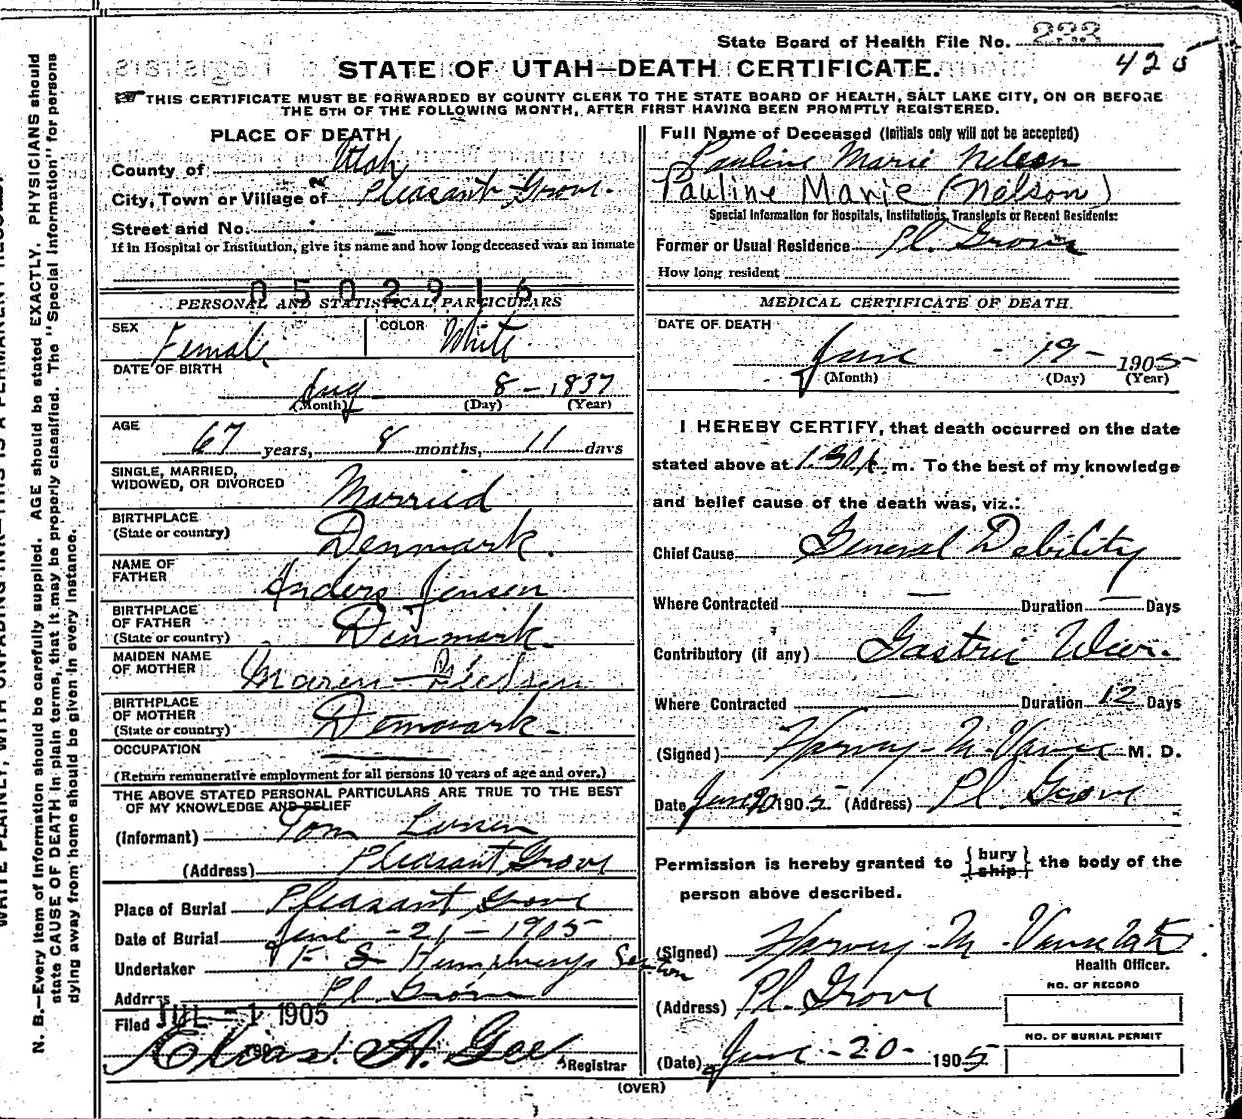 State Board of Health File No. 233
425
STATE OF UTAH—DEATH CERTIFICATE.
THIS CERTIFICATE MUST BE FORWARDED BY COUNTY CLERK TO THE STATE BOARD OF HEALTH, SALT LAKE CITY, ON OR BEFORE
THE 5TH OF THE FOLLOWING MONTH, AFTER FIRST HAVING BEEN PROMPTLY REGISTERED.
PLACE OF DEATH
County of Utah
City, Town or Village of Pleasant Grove.
Street and No. —
If in Hospital or Institution, give its name and how long deceased was an inmate
Full Name of Deceased (Initials only will not be accepted)
Pauline Marie Nelson
Pauline Marie (Nelson)
Special Information for Hospitals, Institutions, Transients or Recent Residents:
Former or Usual Residence Pl. Grove
How long resident
0502916
PERSONAL AND STATISTICAL PARTICULARS
SEX Female COLOR White
DATE OF BIRTH
Aug 8 - 1837
(Month) (Day) (Year)
AGE
67 years, 8 months, 11 days
SINGLE, MARRIED,
WIDOWED, OR DIVORCED Married
BIRTHPLACE
(State or country) Denmark.
NAME OF
FATHER Anders Jensen
BIRTHPLACE
OF FATHER
(State or country) Denmark.
MAIDEN NAME
OF MOTHER Maren
BIRTHPLACE
OF MOTHER
(State or country) Denmark -
OCCUPATION
(Return remunerative employment for all persons 10 years of age and over.)
THE ABOVE STATED PERSONAL PARTICULARS ARE TRUE TO THE BEST
OF MY KNOWLEDGE AND BELIEF
(Informant) Tom Larsen
(Address) Pleasant Grove
Place of Burial Pleasant Grove
Date of Burial June - 21 - 1905
Undertaker F S Humphreys Sexton
Address Pl. Grove
Filed JUL - 1 1905
190
Elias A. Gee Registrar
MEDICAL CERTIFICATE OF DEATH.
DATE OF DEATH
June - 19 - 1905
(Month) (Day) (Year)
I HEREBY CERTIFY, that death occurred on the date
stated above at 1.30 p. m. To the best of my knowledge
and belief cause of the death was, viz.:
Chief Cause General Debility
Where Contracted — Duration — Days
Contributory (if any) Gastric Ulcer.
Where Contracted — Duration 12 Days
(Signed) Harvey M. M. D.
Date June 20 1905 (Address) Pl. Grove
Permission is hereby granted to {bury ship} the body of the
person above described.
(Signed) Harvey M.
Health Officer.
(Address) Pl. Grove
NO. OF RECORD
NO. OF BURIAL PERMIT
(Date) June - 20 - 1905
(OVER)
N. B.—Every item of information should be carefully supplied. AGE should be stated EXACTLY. PHYSICIANS should
state CAUSE OF DEATH in plain terms, that it may be properly classified. The "Special Information" for persons
dying away from home should be given in every instance.